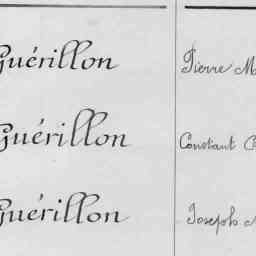 Guérillon Pierre M
Guérillon Constant C
Guérillon Joseph